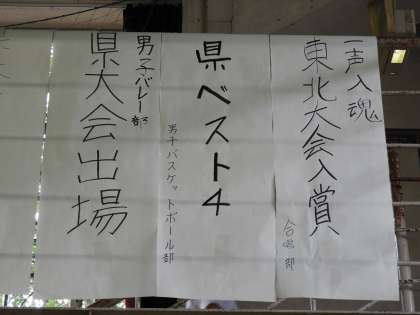 一声入魂
東北大会入賞
合唱部
県ベスト4
男子バスケットボール部
男子バレー部
県大会出場